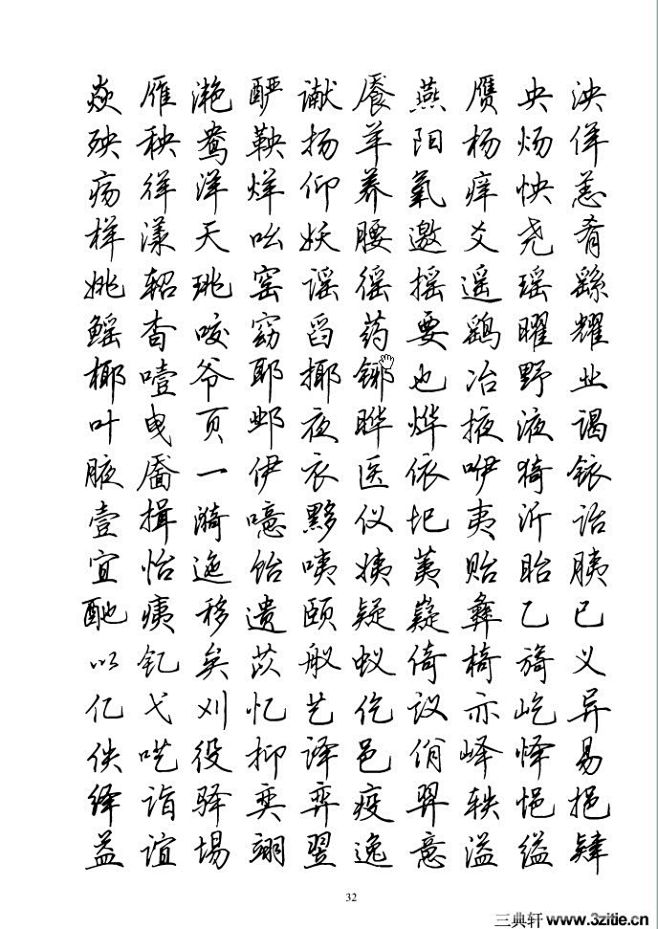 焱 雁 滟 酽 谳 餍 燕 赝 央 泱
殃 秧 鸯 鞅 扬 羊 阳 杨 炀 佯
疡 徉 洋 烊 仰 养 氧 痒 怏 恙
样 漾 夭 吆 妖 腰 邀 爻 尧 肴
姚 轺 珧 窑 谣 徭 摇 遥 瑶 繇
鳐 杳 咬 窈 舀 药 要 鹞 曜 耀
椰 噎 爷 耶 揶 铘 也 冶 野 业
叶 曳 页 邺 夜 晔 烨 掖 液 谒
腋 靥 一 伊 衣 医 依 咿 猗 铱
壹 揖 漪 噫 黟 仪 圯 夷 沂 诒
宜 怡 迤 饴 咦 姨 荑 贻 眙 胰
酏 痍 移 遗 颐 疑 嶷 彝 乙 已
以 钇 矣 苡 舣 蚁 倚 椅 旖 义
亿 弋 刈 忆 艺 仡 议 亦 屹 异
佚 呓 役 抑 译 邑 佾 峄 怿 易
绎 诣 驿 奕 弈 疫 羿 轶 悒 挹
益 谊 埸 翊 翌 逸 意 溢 缢 肄
32
三典轩 www.3zitie.cn